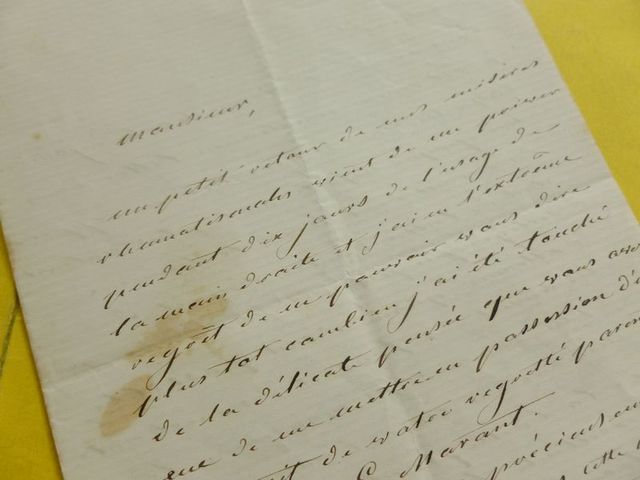 Monsieur,
un petit retour de mes misères
rhumatismales vient de me priver
pendant dix jours de l'usage de
la main droite et j'ai eu l'extrême
regrêt de ne pouvoir vous dire
plus tot combien j'ai été touché
de la délicate pensée que vous
que de me mettre en possession
de votre regretté
Marant.
précieux
cette